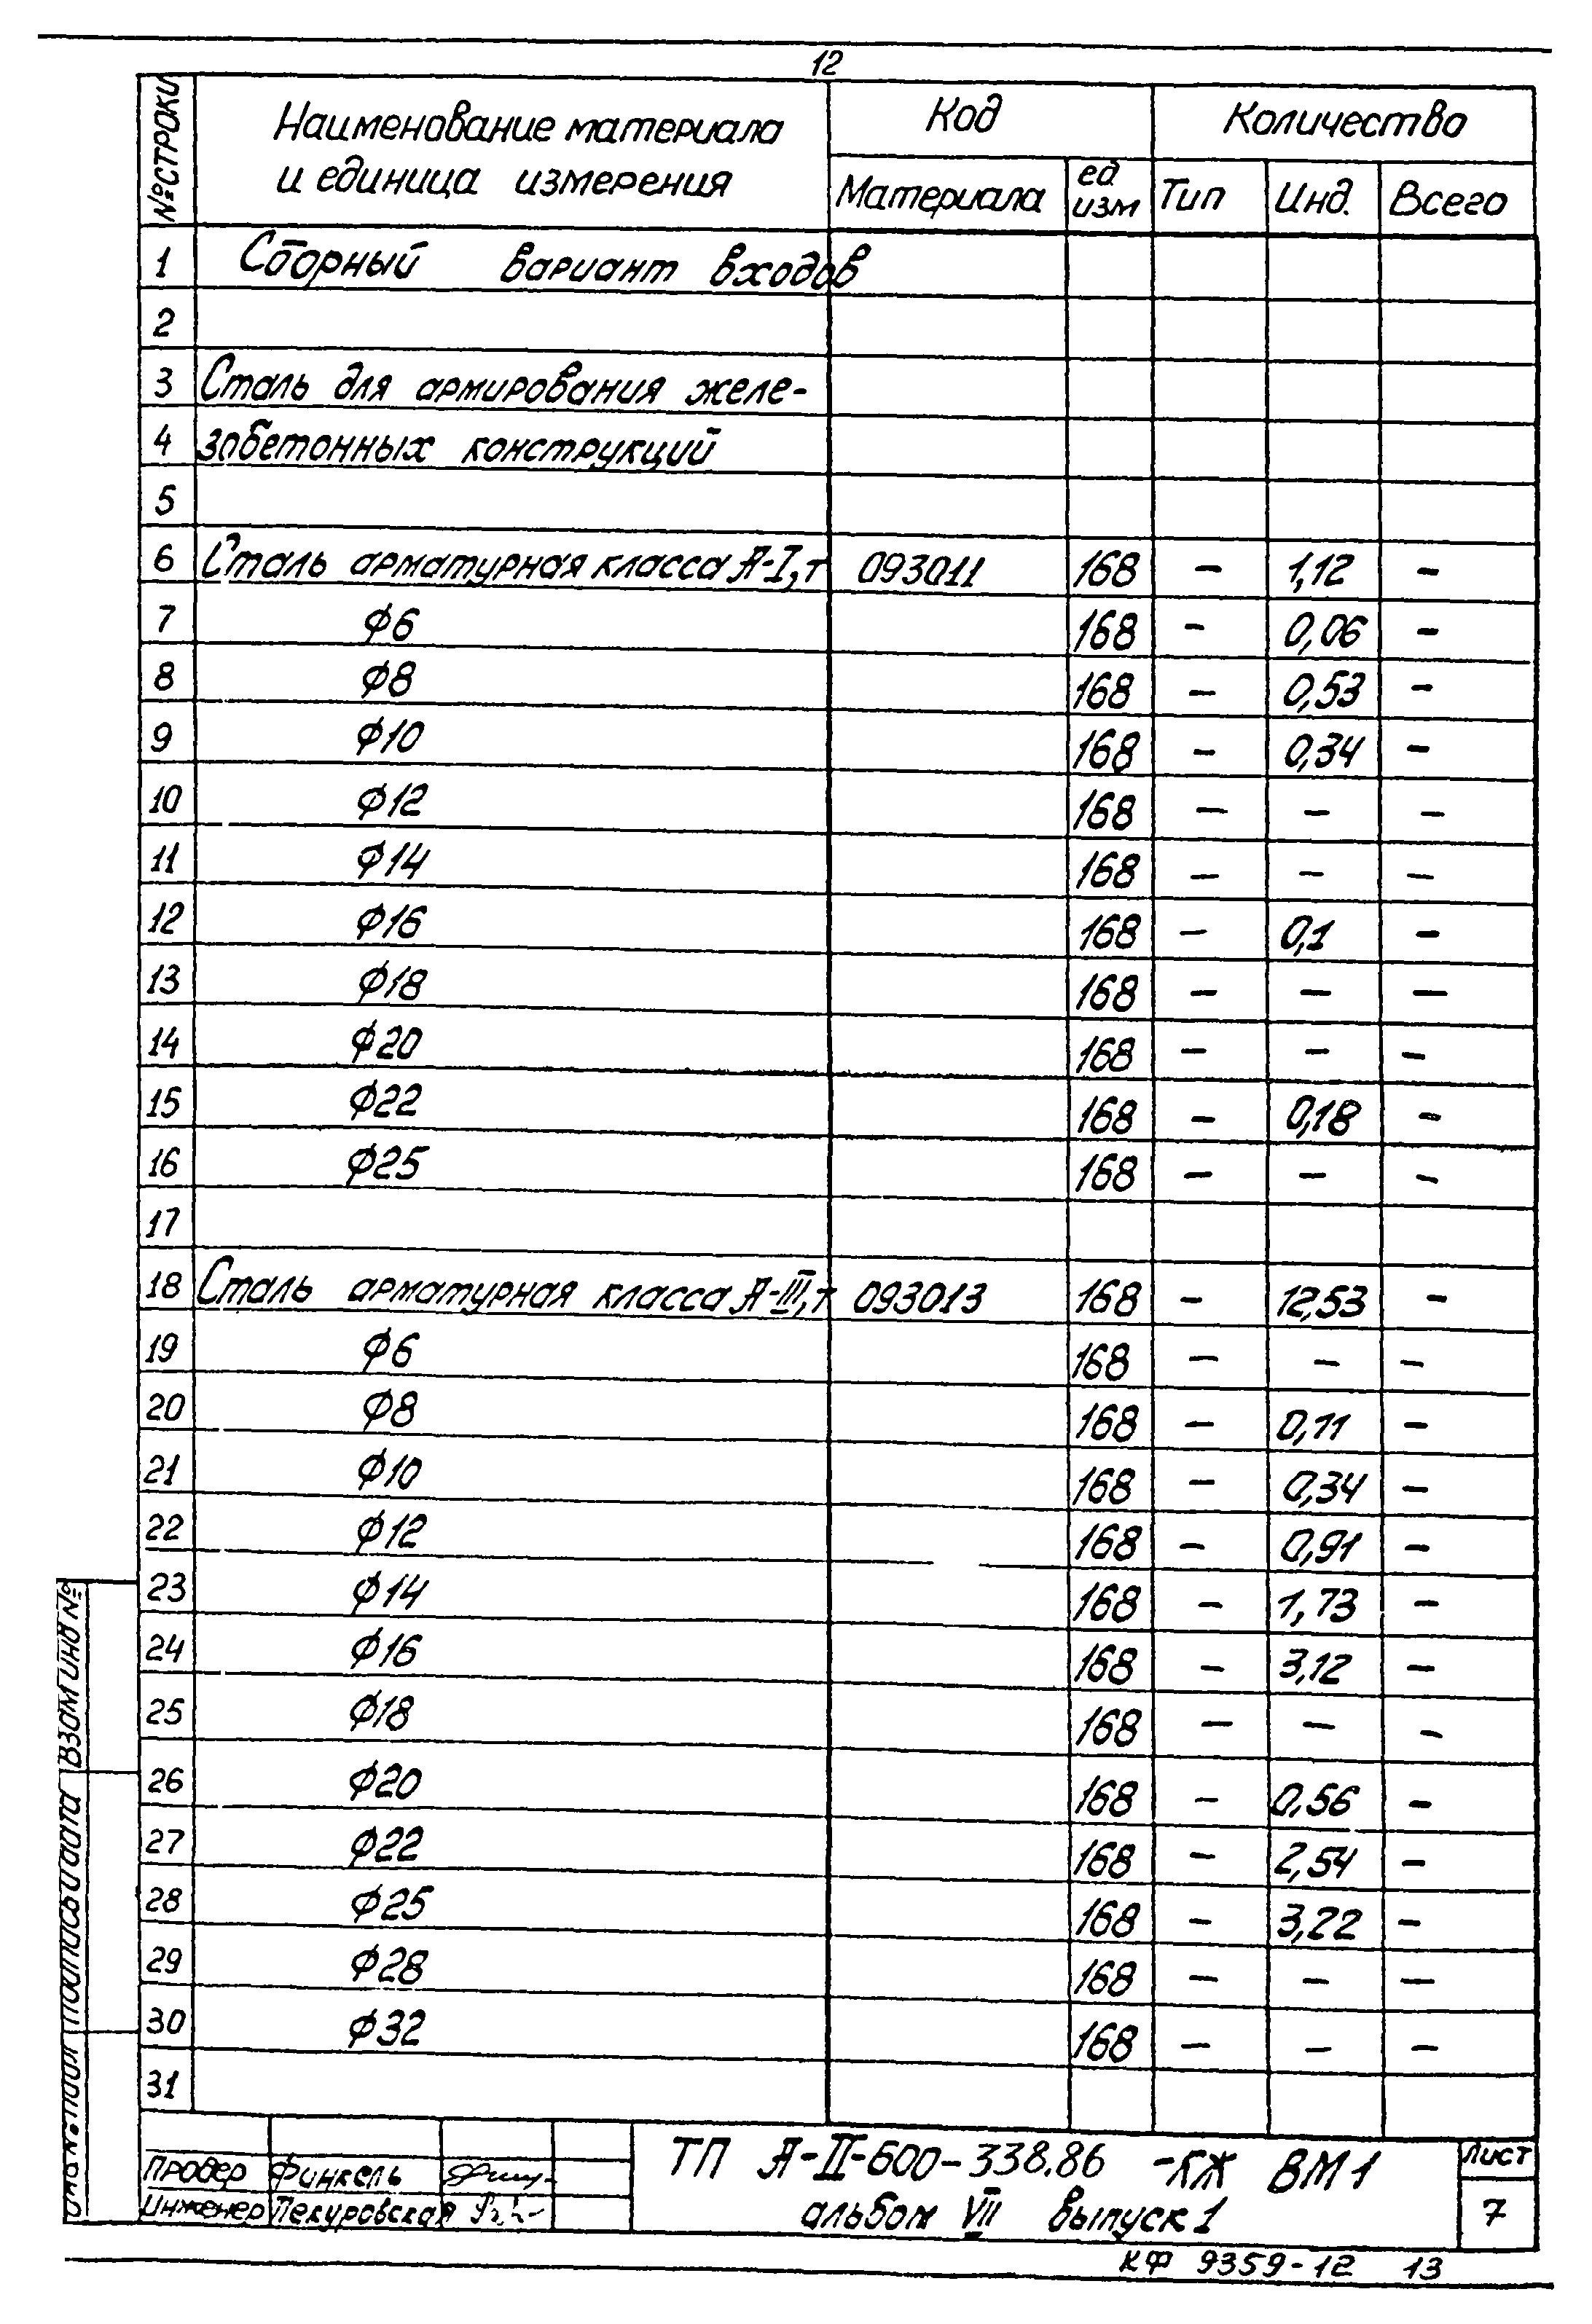 12
№ строки
Наименование материала
и единица измерения
Код
Количество
Материала
ед
изм
Тип
Инд.
Всего
1 Сборный вариант входов
2
3 Сталь для армирования желе-
4 зобетонных конструкций
5
6 Сталь арматурная класса А-I, т 093011 168 – 1,12 –
7 ϕ6 168 – 0,06 –
8 ϕ8 168 – 0,53 –
9 ϕ10 168 – 0,34 –
10 ϕ12 168 – – –
11 ϕ14 168 – – –
12 ϕ16 168 – 0,1 –
13 ϕ18 168 – – –
14 ϕ20 168 – – –
15 ϕ22 168 – 0,18 –
16 ϕ25 168 – – –
17
18 Сталь арматурная класса А-III, т 093013 168 – 12,53 –
19 ϕ6 168 – – –
20 ϕ8 168 – 0,11 –
21 ϕ10 168 – 0,34 –
22 ϕ12 168 – 0,91 –
23 ϕ14 168 – 1,73 –
24 ϕ16 168 – 3,12 –
25 ϕ18 168 – – –
26 ϕ20 168 – 0,56 –
27 ϕ22 168 – 2,54 –
28 ϕ25 168 – 3,22 –
29 ϕ28 168 – – –
30 ϕ32 168 – – –
31
Взам инв №
Подпись и дата
Инв № подл
Провер Финкель
Инженер Пекуровская
ТП А-II-600-338.86 -КЖ ВМ1
альбом VII выпуск 1
Лист
7
КФ 9359-12 13